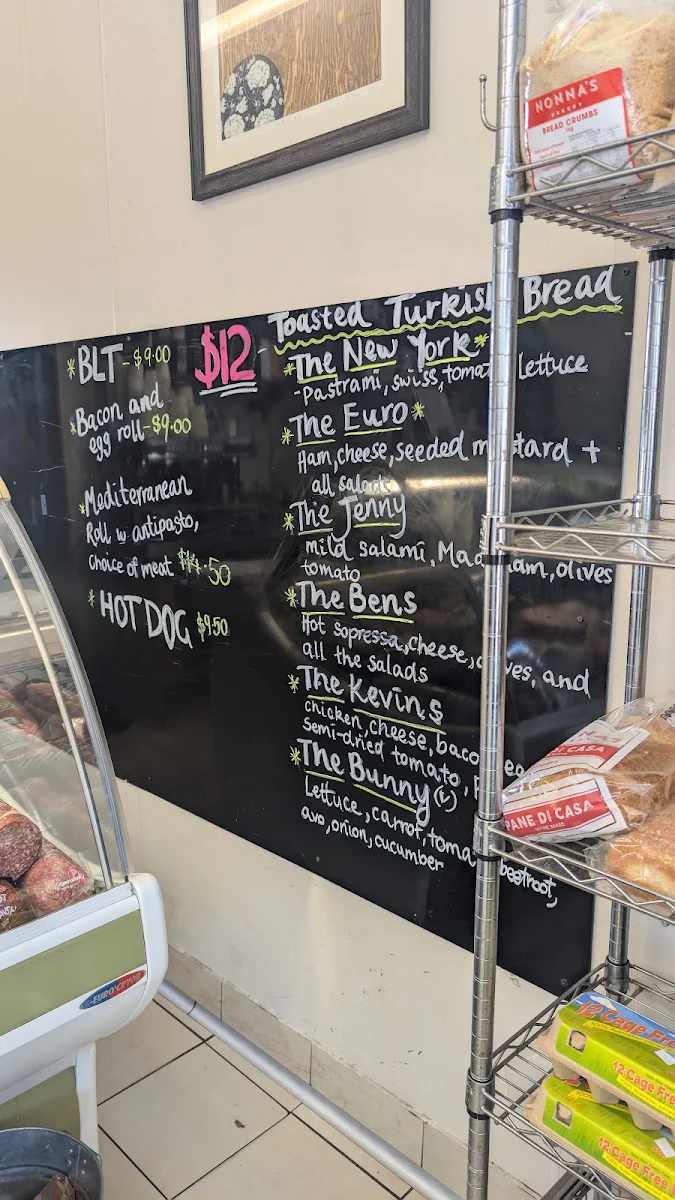 NONNA'S
BAKERY
BREAD CRUMBS
1kg
* BLT - $9.00
* Bacon and
egg roll - $9.00
* Mediterranean
Roll w antipasto,
choice of meat $14.50
* HOT DOG $9.50
$12
Toasted Turkish Bread
* The New York *
- Pastrami, swiss, tomat lettuce
* The Euro *
Ham, cheese, seeded m stard +
all salad
* The Jenny
mild salami, Maa dam, olives
tomato
* The Bens
Hot sopressa, cheese, o ves, and
all the salads
* The Kevins
chicken, cheese, baco
semi-dried tomato,
* The Bunny (v)
Lettuce, carrot, toma beetroot,
avo, onion, cucumber
DI CASA
PANE DI CASA
EUROCRYOR
12 Cage Fre
12 Cage Fre
12 Cage Fre
12 Cage Fre